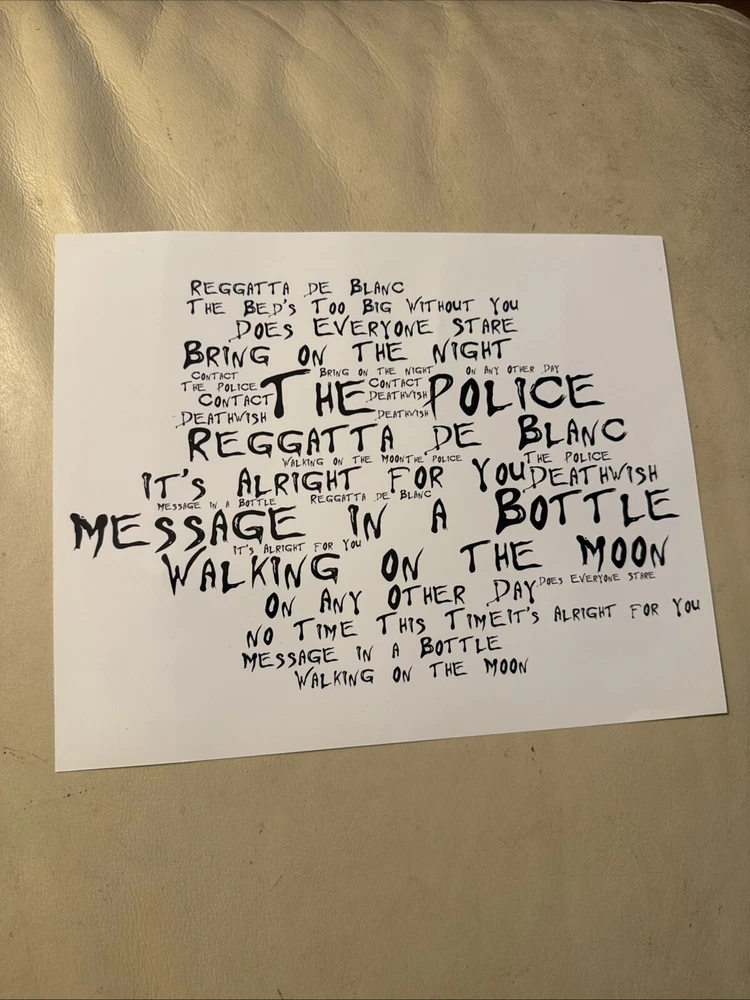 REGGATTA DE BLANC
THE BED'S TOO BIG WITHOUT YOU
DOES EVERYONE STARE
BRING ON THE NIGHT
CONTACT BRING ON THE NIGHT ON ANY OTHER DAY
THE POLICE CONTACT
THE POLICE
CONTACT DEATHWISH
DEATHWISH DEATHWISH
REGGATTA DE BLANC
WALKING ON THE MOON THE POLICE THE POLICE
IT'S ALRIGHT FOR YOU DEATHWISH
MESSAGE IN A BOTTLE REGGATTA DE BLANC
MESSAGE IN A BOTTLE
IT'S ALRIGHT FOR YOU
WALKING ON THE MOON
ON ANY OTHER DAY DOES EVERYONE STARE
NO TIME THIS TIME IT'S ALRIGHT FOR YOU
MESSAGE IN A BOTTLE
WALKING ON THE MOON